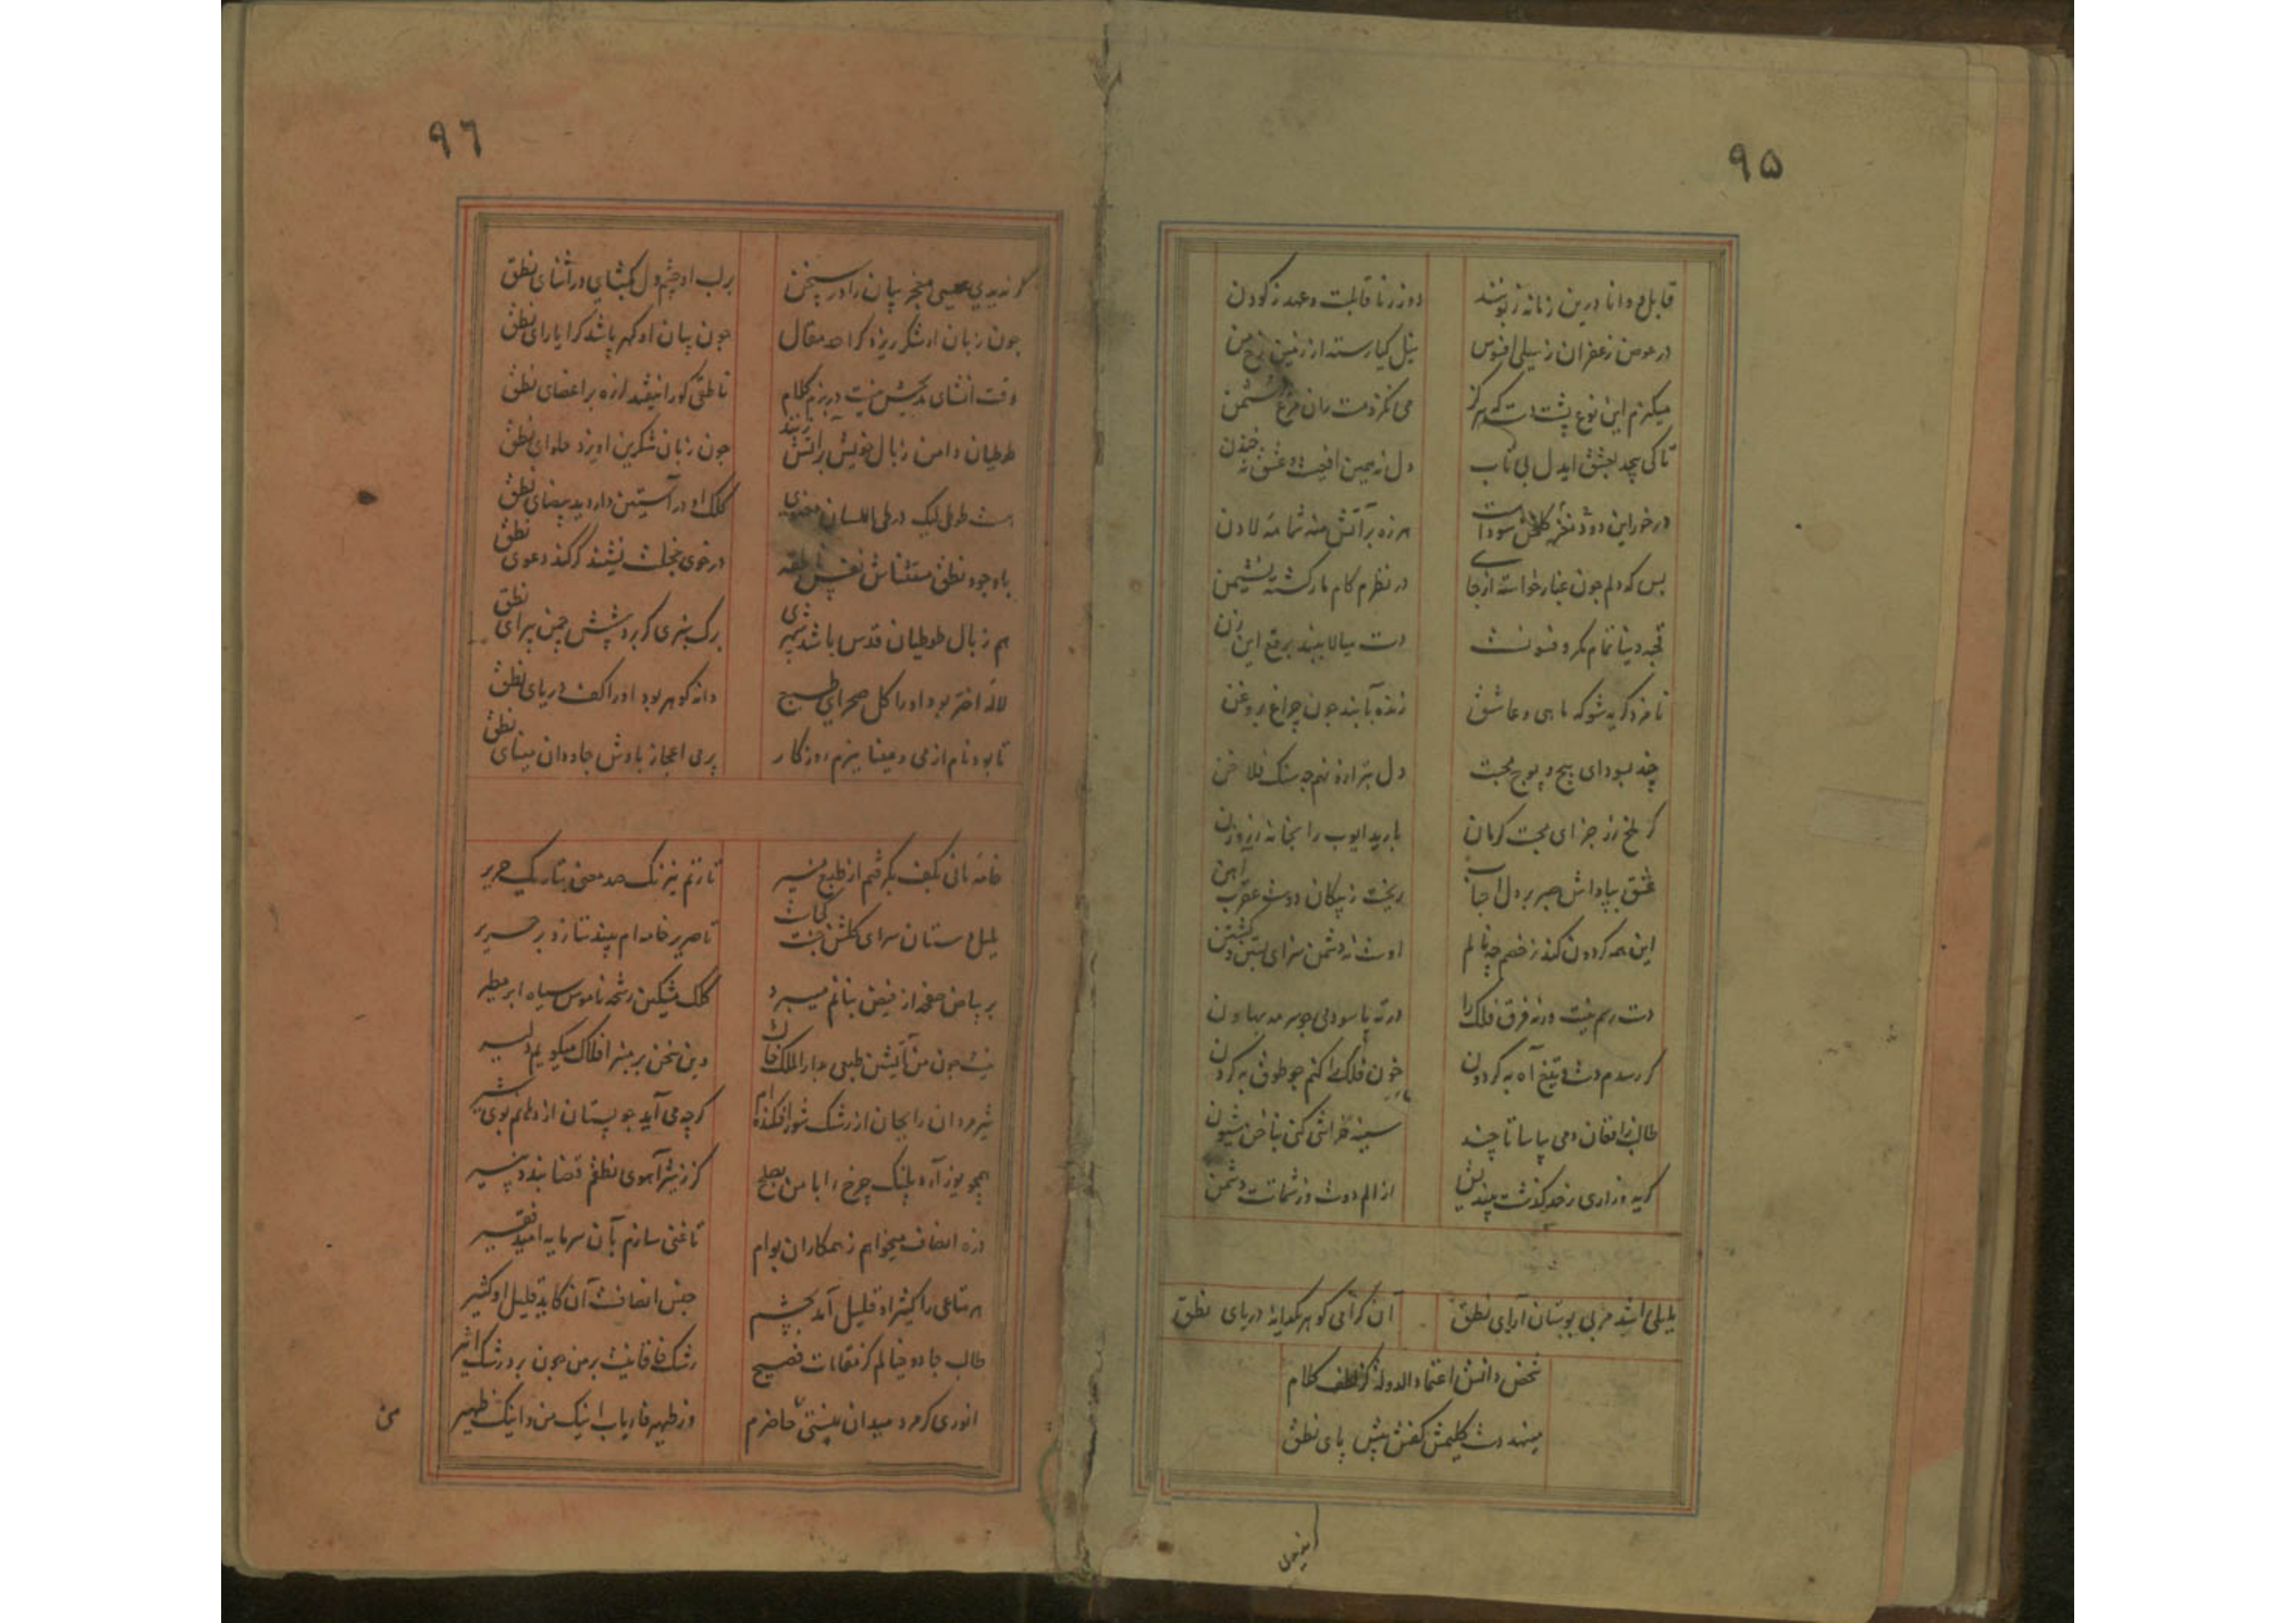 ۹۵
قابل و دانا درین زمانه زبونند
دور زنا قابلست و عهد ز کودن
در عوض زعفران ز سیلی افسوس
نیل گیا رسته از زمین رخ من
میکزم این نوع پشت دست که هرگز
می نگزد مست ران مرغ
تا کی پیچد بعشق ایدل بی تاب
دل نه همین
در خور این دود مغز گلخن سوداست
هرزه بر آتش منه شمامه لادن
بس که دلم چون غبار خواسته از جای
در نظرم کام مار گشته نشیمن
قحبه دنیا تمام مکر و فسونست
دست میالا ببند برقع این زن
نامزد گریه شو که ماهی و عاشق
زنده بآبند چون چراغ بروغن
چند بسودای هیچ و پوچ محبت
دل بتر ازو نهم چو سنگ فلاخن
کر ملخ زر جزای محبت کرمان
بارید ایوب را بخانه ز روزن
عشق بپاداش صبر بر دل ما جا
ریخت ز پیکان دوست عقرب آهن
این همه گردون کند ز خصم چه نالم
اوست نه دشمن سزای بستن و کشتن
دست رسم نیست ورنه فرق فلک را
در ته پا سودمی چو سرمه بهاون
گر رسدم دست و تیغ آه به گردون
خون فلک را کنم چو طوق به گردن
طالب از افغان دمی بیاسا تا چند
سینه خراشی کنی بناخن شیون
گریه و زاری ز حد گذشت میندیش
از الم دوست وز شماتت دشمن
بلبلی اشد مربی بوستان آرای نطق
آن گرامی گوهر یکدانه دریای نطق
شخص دانش اعتماد الدوله کز لطف کلام
مینهد دست کلیمش کفش پیش پای نطق
۹۶
گر ندیدی عیسی معجز بیان را در سخن
بر لب او چشم دل بگشای در اثنای نطق
چون زبان او شکر ریزد کرا حد مقال
چون بیان او گهر پاشد کرا یارای نطق
وقت انشای مدیحش نیست در بزم کلام
ناطقی کو را نیفتد لرزه بر اعضای نطق
طوطیان دامن ز بال خویش بر آتش زنند
چون زبان شکرین او پزد حلوای نطق
هست طوطی لیک در طی اللسان
کلک او در آستین دارد ید بیضای نطق
با وجود نطق مستثناش نفس ناطقه
در خوی خجلت نشیند گر کند دعوی نطق
هم ز بال طوطیان قدس باشد شهپری
برگ سبزی گر برد پیشش چمن پیرای نطق
لاله اختر بود او را گل صحرای طبع
دانه گوهر بود او را کف دریای نطق
تا بود نام از می و مینا ببزم روزگار
پر می اعجاز بادش جاودان مینای نطق
خامه مانی بکف بگرفتم از طبع منیر
تا زنم نیرنگ صد معنی بتار یک حریر
بلبل دستان سرای گلشن جنت کجاست
تا صریر خامه ام بیند بتازد بر صریر
بر بیاض صفحه از فیض بنانم میبرد
کلک مشکین رشحه ناموس سیاه ابر مطیر
نیست چون من آتشین طبعی بدار الملک خاک
وین سخن بر منبر افلاک میگویم دلیر
شیر مردان را بجان از رشک شور افکنده ام
گرچه می آید چو پستان از دهانم بوی شیر
همچو یوز آرد پلنگ چرخ را با من بصلح
گر ز شیر آهوی نطقم قضا بندد پنیر
ذره انصاف میخواهم ز همکاران بوام
تا غنی سازم بآن سرمایه امید فقیر
هر متاعی را کثیر او قلیل آمد بچشم
جنس انصافست آن کاید قلیل او کثیر
طالب جادو خیالم کز مقامات فصیح
رشک خاقانیست بر من چون برد رشک اثیر
انوری گر مرد میدان نیستی حاضرم
ور ظهیر فاریاب اینک من و اینک ظهیر